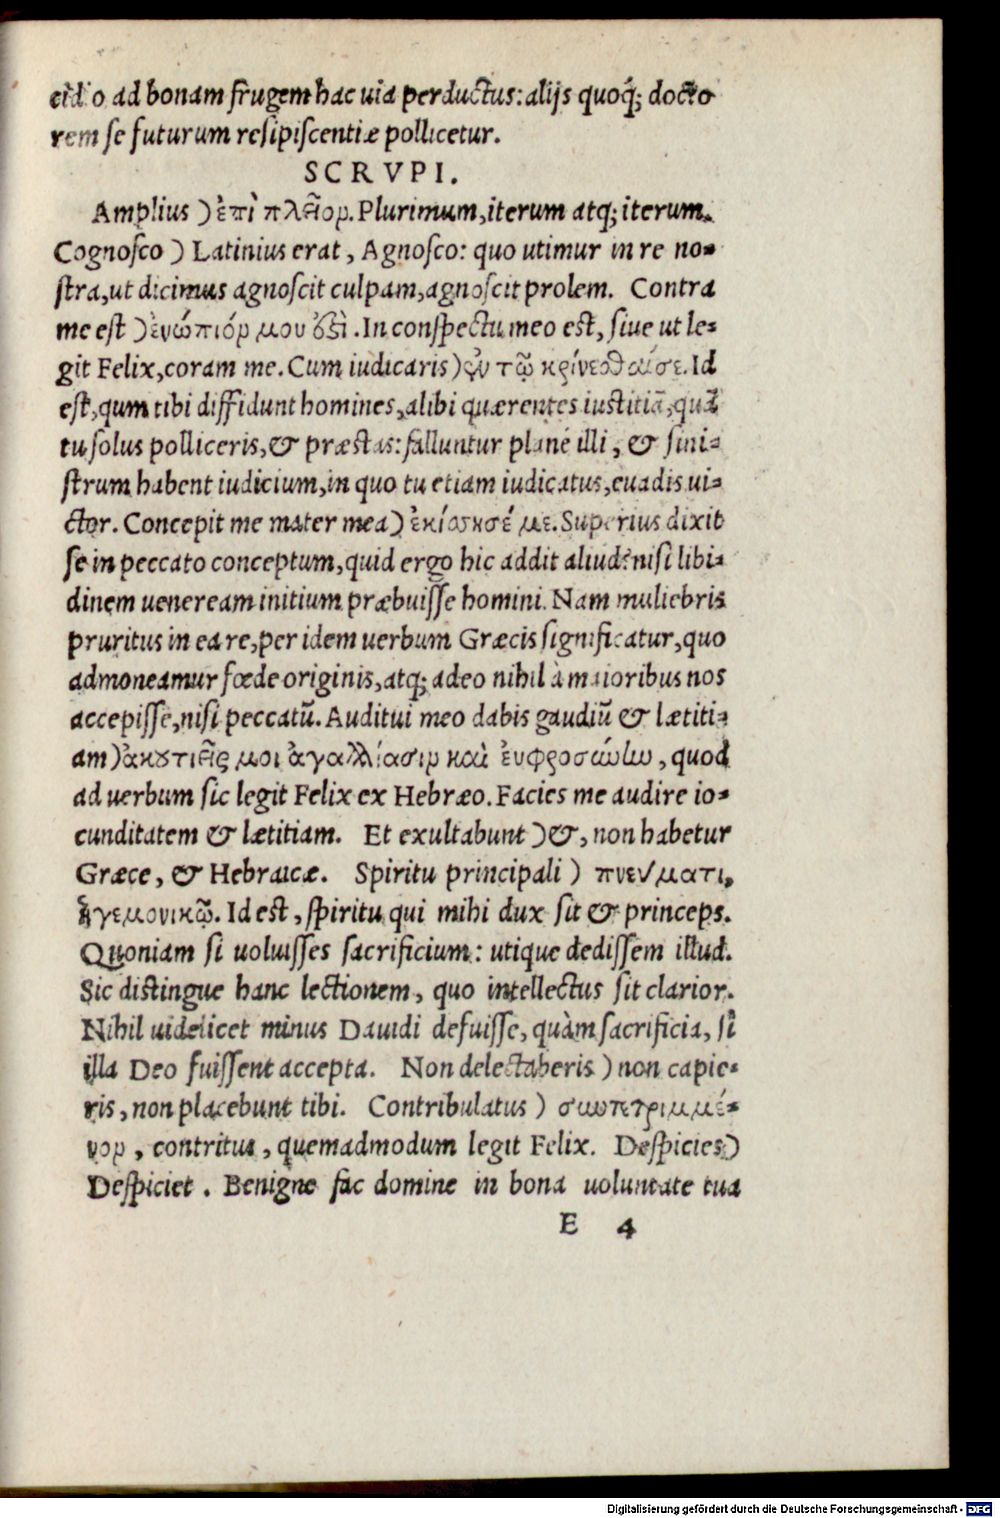 cidio ad bonam frugem hac uia perductus: alijs quoq; docto
rem se futurum resipiscentiæ pollicetur.
SCRVPI.
Amplius) ἐπὶ πλεῖον. Plurimum, iterum atq; iterum.
Cognosco) Latinius erat, Agnosco: quo utimur in re no-
stra, ut dicimus agnoscit culpam, agnoscit prolem. Contra
me est) ἐνώπιόν μου ἐστὶ. In conspectu meo est, siue ut le-
git Felix, coram me. Cum iudicaris) ἐν τῷ κρίνεσθαί σε. Id
est, qum tibi diffidunt homines, alibi quærentes iustitiā, quā
tu solus polliceris, & præstas: falluntur planè illi, & sini-
strum habent iudicium, in quo tu etiam iudicatus, euadis ui-
ctor. Concepit me mater mea) ἐκίσσησέ με. Superius dixit
se in peccato conceptum, quid ergo hic addit aliud? nisi libi-
dinem ueneream initium præbuisse homini. Nam muliebris
pruritus in ea re, per idem uerbum Græcis significatur, quo
admoneamur fœde originis, atq; adeo nihil à maioribus nos
accepisse, nisi peccatū. Auditui meo dabis gaudiū & lætiti-
am) ἀκουτιεῖς μοι ἀγαλλίασιν καὶ ἐυφροσύνην, quod
ad uerbum sic legit Felix ex Hebræo. Facies me audire io-
cunditatem & lætitiam. Et exultabunt) &, non habetur
Græce, & Hebraicæ. Spiritu principali) πνεύματι,
ἡγεμονικῷ. Id est, spiritu qui mihi dux sit & princeps.
Quoniam si uoluisses sacrificium: utique dedissem illud.
Sic distingue hanc lectionem, quo intellectus sit clarior.
Nihil uidelicet minus Dauidi defuisse, quàm sacrificia, si
illa Deo fuissent accepta. Non delectaberis) non capie-
ris, non placebunt tibi. Contribulatus) συντετριμμέ-
νον, contritus, quemadmodum legit Felix. Despicies)
Despiciet. Benigne fac domine in bona uoluntate tua
E 4
Digitalisierung gefördert durch die Deutsche Forschungsgemeinschaft - DFG